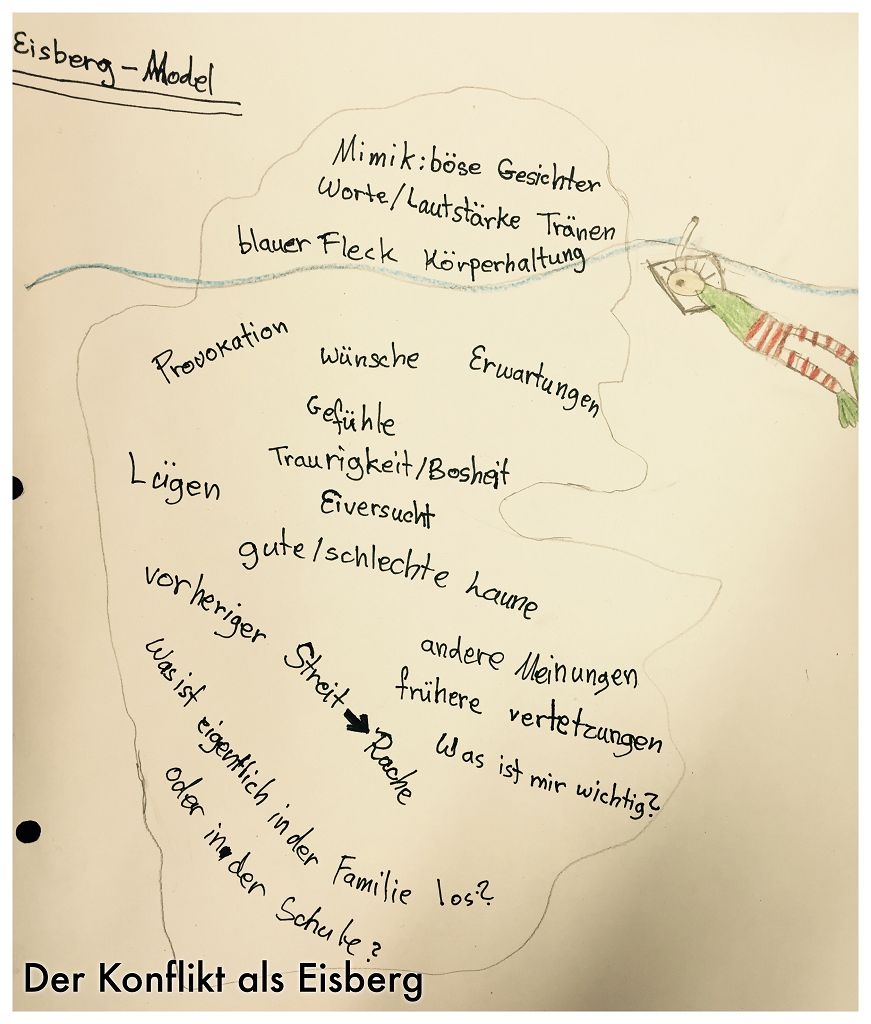 Eisberg - Model
Mimik: böse Gesichter
Worte/Lautstärke Tränen
blauer Fleck Körperhaltung
Provokation
wünsche
Erwartungen
Gefühle
Traurigkeit/Bosheit
Lügen
Eiversucht
gute/schlechte Laune
vorheriger Streit → Rache
andere Meinungen
frühere vertetzungen
Was ist mir wichtig?
Was ist eigentlich in der Familie los?
oder in der Schule?
Der Konflikt als Eisberg